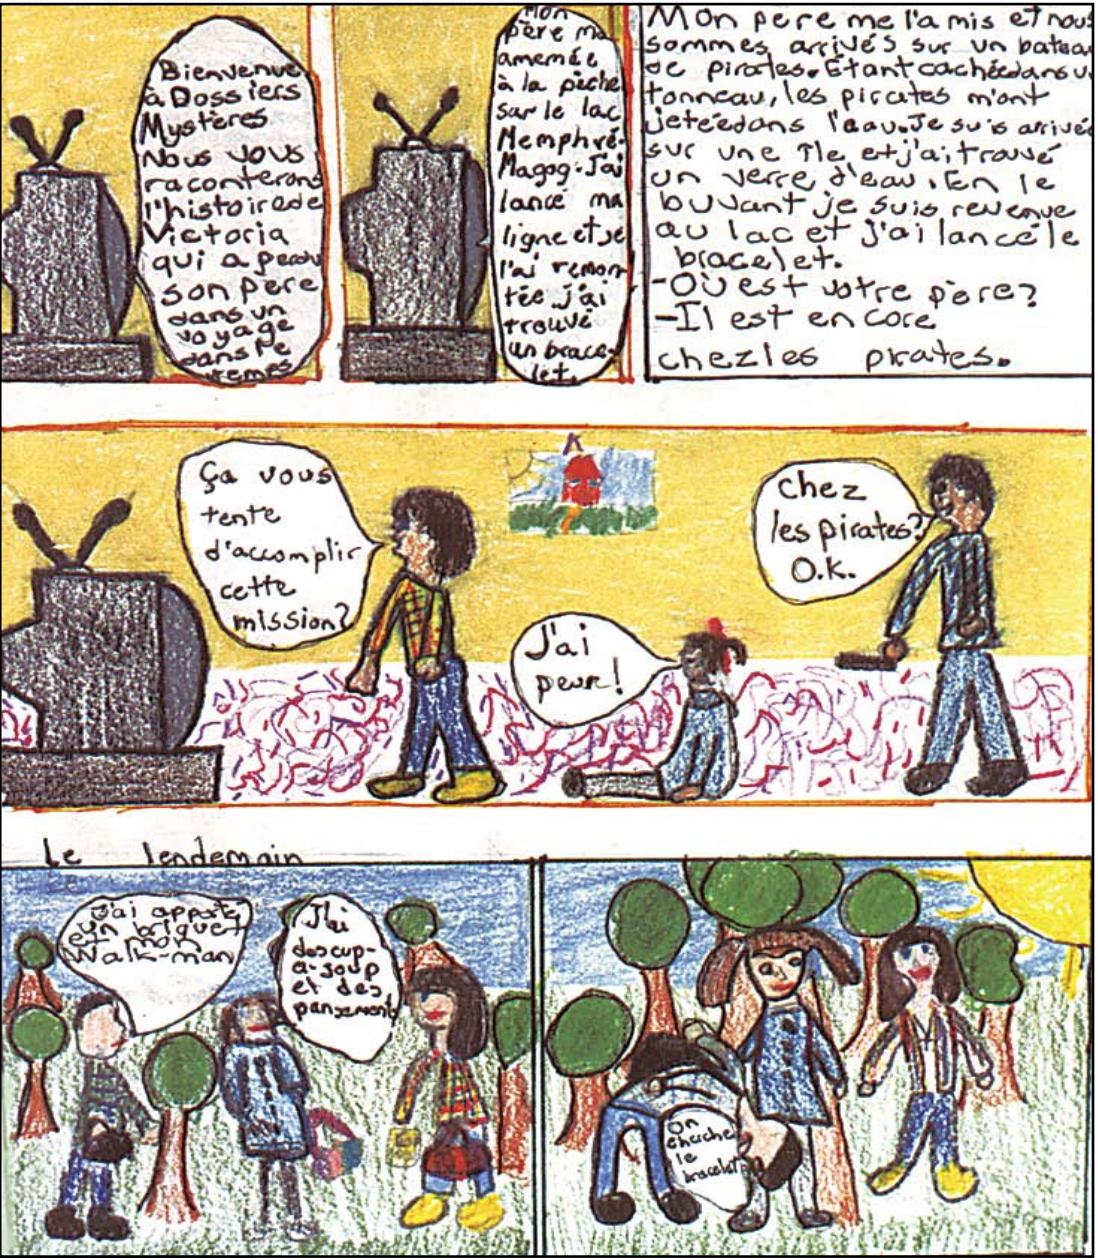 Bienvenue
à Dossiers
Mystères
Nous vous
raconterons
l'histoire de
Victoria
qui a perdu
son père
dans un
voyage
dans le
temps
Mon
père m'a
amemée
à la pêche
sur le lac
Memphré-
Magog. J'ai
lancé ma
ligne et je
l'ai remon-
tée. J'ai
trouvé
un brace-
let.
Mon père me l'a mis et nous
sommes arrivés sur un bateau
de pirates. Étant cachée dans un
tonneau, les pirates m'ont
jeteé dans l'eau. Je suis arrivée
sur une île, et j'ai trouvé
un verre d'eau. En le
buvant je suis revenue
au lac et j'ai lancé le
bracelet.
-Où est votre père?
-Il est encore
chez les pirates.
Ça vous
tente
d'accomplir
cette
mission?
J'ai
peur!
Chez
les pirates?
O.K.
Le lendemain
J'ai apporté
un briquet
mon
Walk-man
J'ai
des cup-
a-soup
et des
pansements
On
cherche
le
bracelet